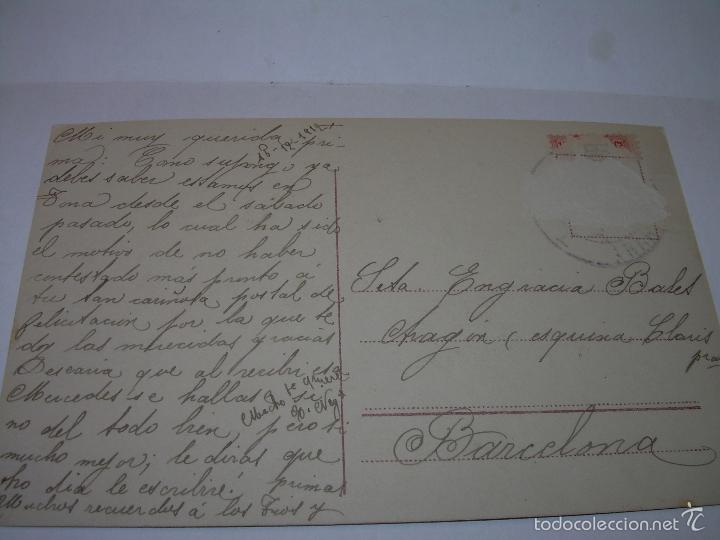 Mi muy querida pri-
ma: Como supongo ya
debes saber estamos en
Tona desde el sábado
pasado, lo cual ha sido
el motivo de no haber
contestado más pronto á
tu tan cariñosa postal de
felicitación por la que te
doy las merecidas gracias
Desearia que al recibir esa
Mercedes se hallase si
no del todo bien, pero si
mucho mejor; le diras que
otro dia le escribiré!
Muchos recuerdos á los Tios y
primas
Mucho te quiere
18-12-191
Srta Engracia Balet
Aragón, esquina Claris
pral
Barcelona
todocoleccion.net